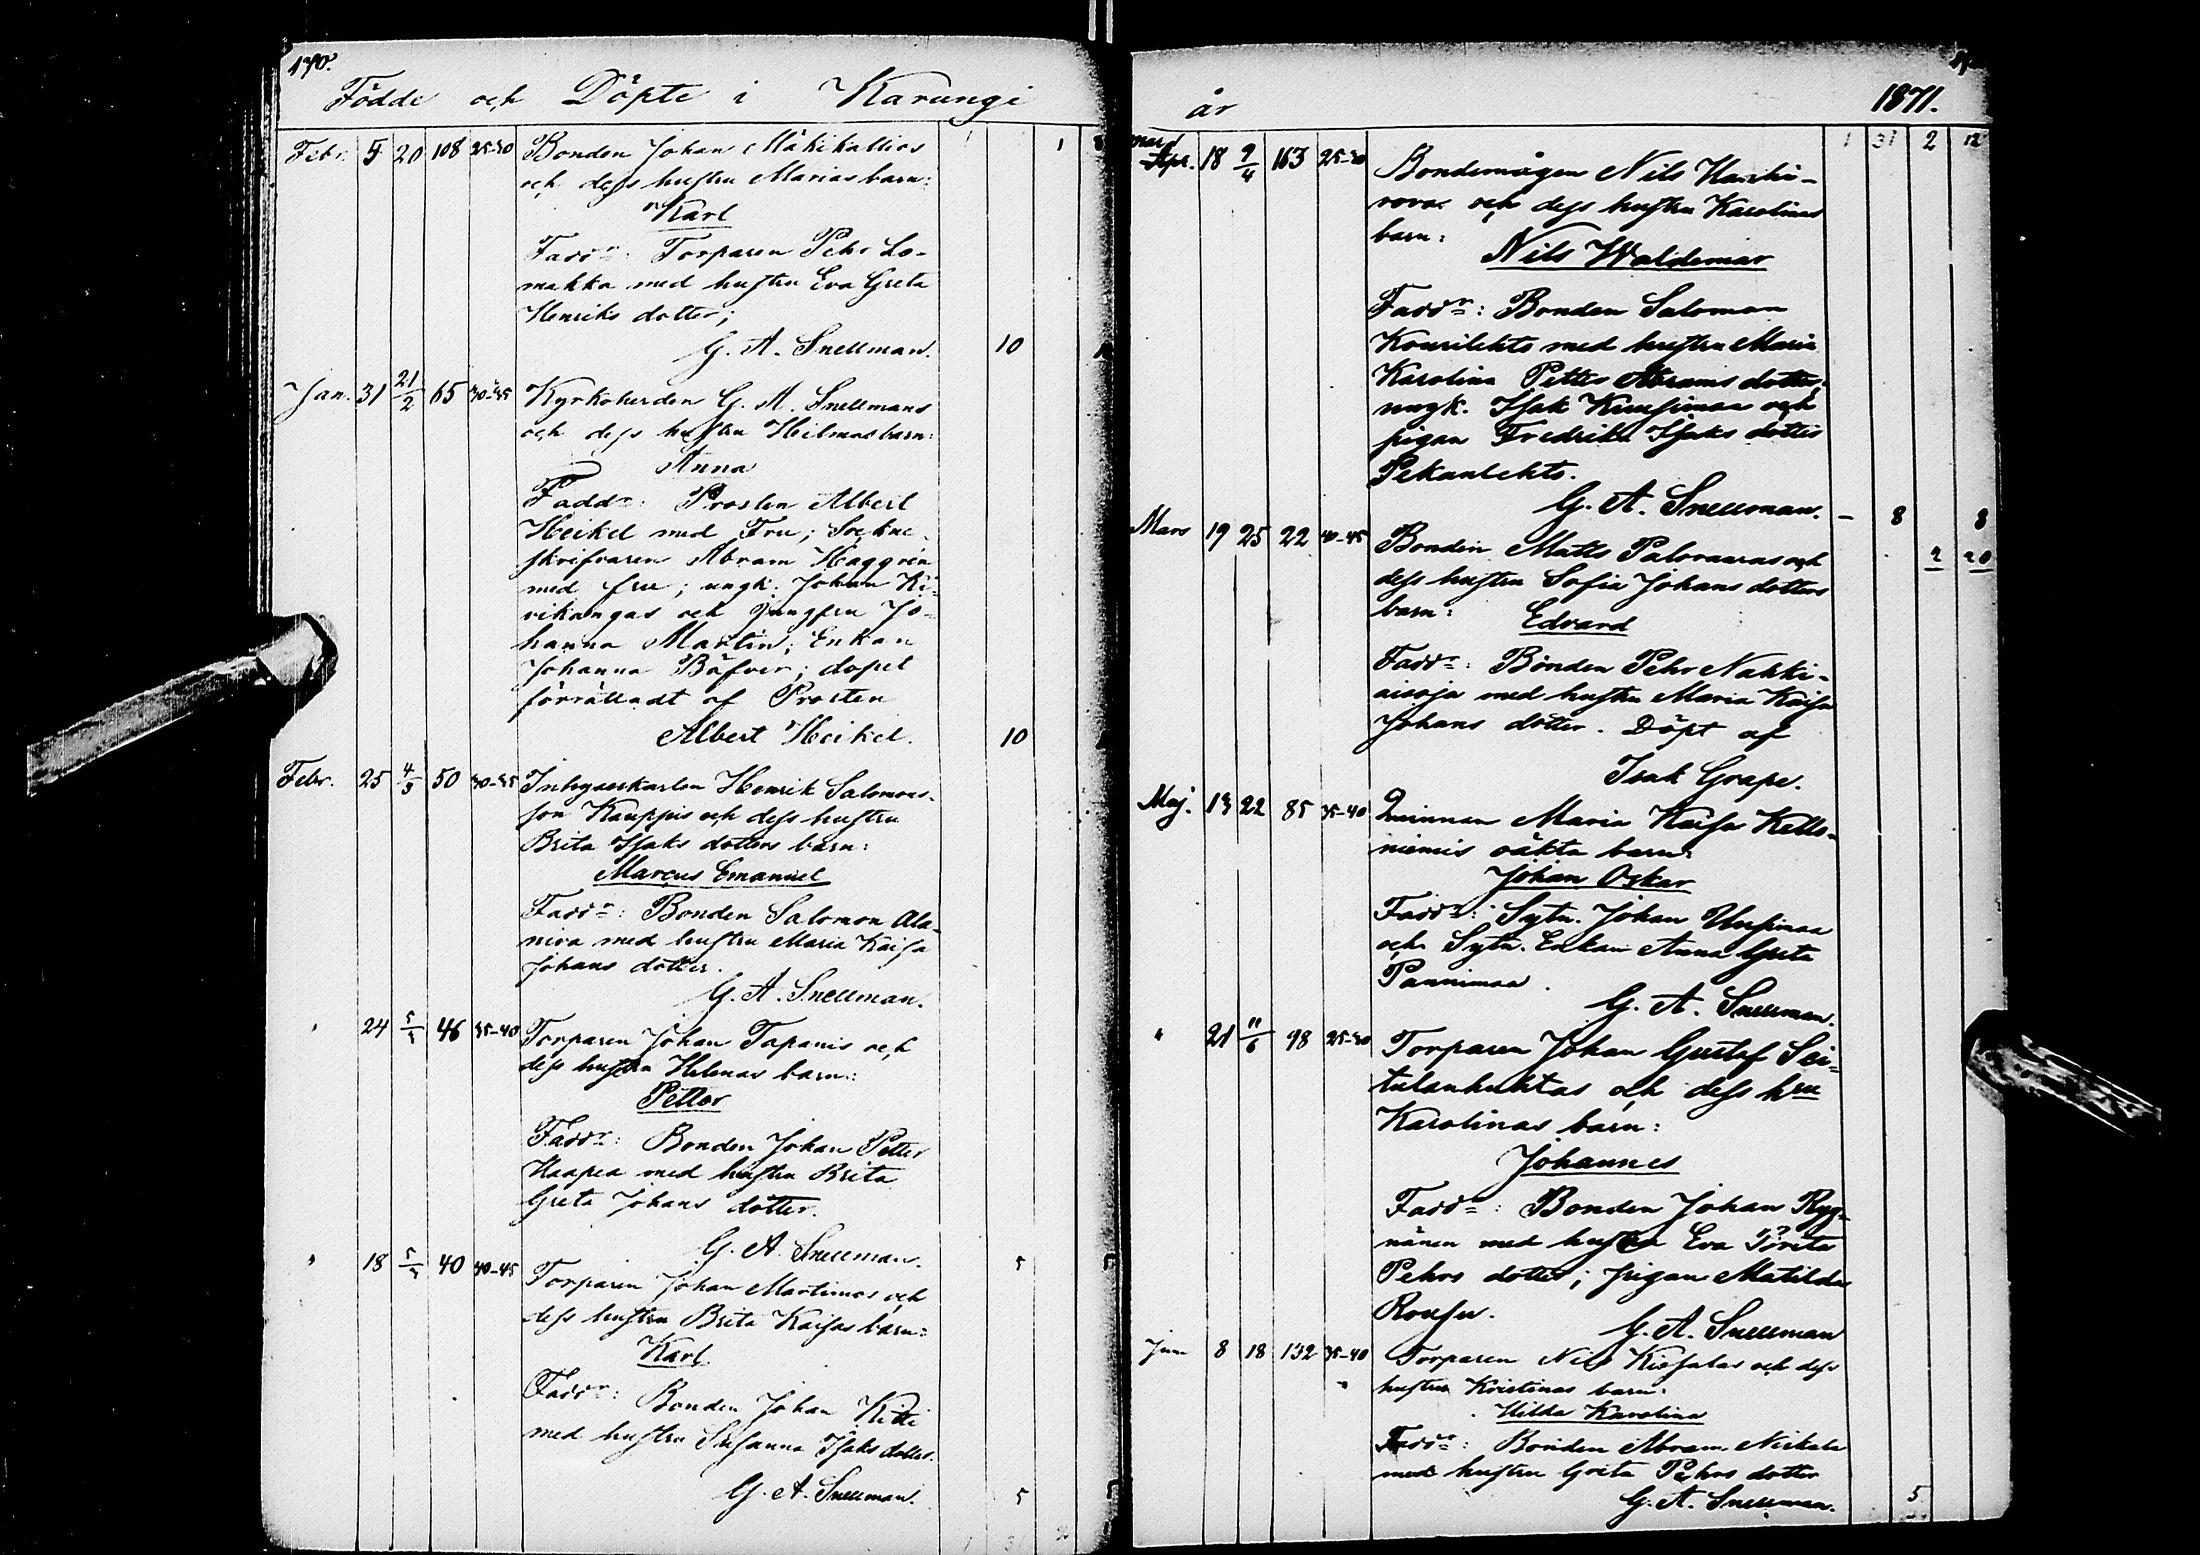 170.
Födde och Döpte i Karungi
Febr. 5 20 108 25-30 Bonden Johan Mäkikallios
och dess hustru Marias barn:
Karl
Fadd:r: Torparen Pehr Lo-
makka med hustru Eva Greta
Henriks dotter;
G. A. Snellman. 10
Jan. 31 21/2 65 30-35 Kyrkoherden G. A. Snellmans
och dess hustru Hilmas barn:
Anna
Fadd:r: Prosten Albert
Heikel med Fru; Sockne-
skrifvaren Abram Häggrén
med fru; ungk. Johan Ki-
vikangas och Jungfru Jo-
hanna Martin; Enkan
Johanna Bäfver; dopet
förrättadt af Prosten
Albert Heikel. 10
Febr. 25 4/3 50 30-35 Inhyseskarlen Henrik Salomons-
son Kauppis och dess hustru
Brita Isaks dotters barn:
Marcus Emanuel
Fadd:r: Bonden Salomon Ala-
niva med hustru Maria Kaisa
Johans dotter.
G. A. Snellman.
" 24 5/3 46 35-40 Torparen Johan Tapanis och
dess hustru Helenas barn:
Petter
Fadd:r: Bonden Johan Petter
Haapea med hustru Brita
Greta Johans dotter.
G. A. Snellman. 5 5
" 18 5/3 40 40-45 Torparen Johan Martimos och
dess hustru Brita Kaisas barn:
Karl
Fadd:r: Bonden Johan Kitti
med hustru Susanna Isaks dotter.
G. A. Snellman. 5 5
år 1871.
1 31 2 12
Mars
Apr. 18 9/4 163 25-30 Bondemågen Nils Harhi-
rovas och dess hustru Karolinas
barn:
Nils Waldemar
Fadd:r: Bonden Salomon
Kourilehto med hustru Maria
Karolina Petter Abrams dotter;
ungk. Isak Kuusimaa och
pigan Fredrika Isaks dotter
Pekanlehto.
G. A. Snellman. - 8 8
Mars 19 25 22 40-45 Bonden Matts Palovaaras och 2 20
dess hustru Sofia Johans dotters
barn:
Edvard
Fadd:r: Bonden Pehr Nakki-
aisoja med hustru Maria Kaisa
Johans dotter. Döpt af
Isak Grape.
Maj. 13 22 85 35-40 Quinnan Maria Kaisa Kello-
niemis oäkta barn:
Johan Oskar
Fadd:r: Sytn. Johan Uusimaa
och Sytn. Enkan Anna Greta
Pannimaa.
G. A. Snellman.
" 21 11/6 98 25-30 Torparen Johan Gustaf Sei-
tulanhuhtas och dess h:ru
Karolinas barn:
Johannes
Fadd:r: Bonden Johan Ryg-
nänen med hustru Eva Brita
Pehrs dotter; pigan Matilda
Rousu.
G. A. Snellman
Juni 8 18 132 35-40 Torparen Nils Kiefalas och dess
hustru Kristinas barn:
Hilda Karolina
Fadd:r: Bonden Abram Niskala
med hustru Greta Pehrs dotter
G. A. Snellman. 5